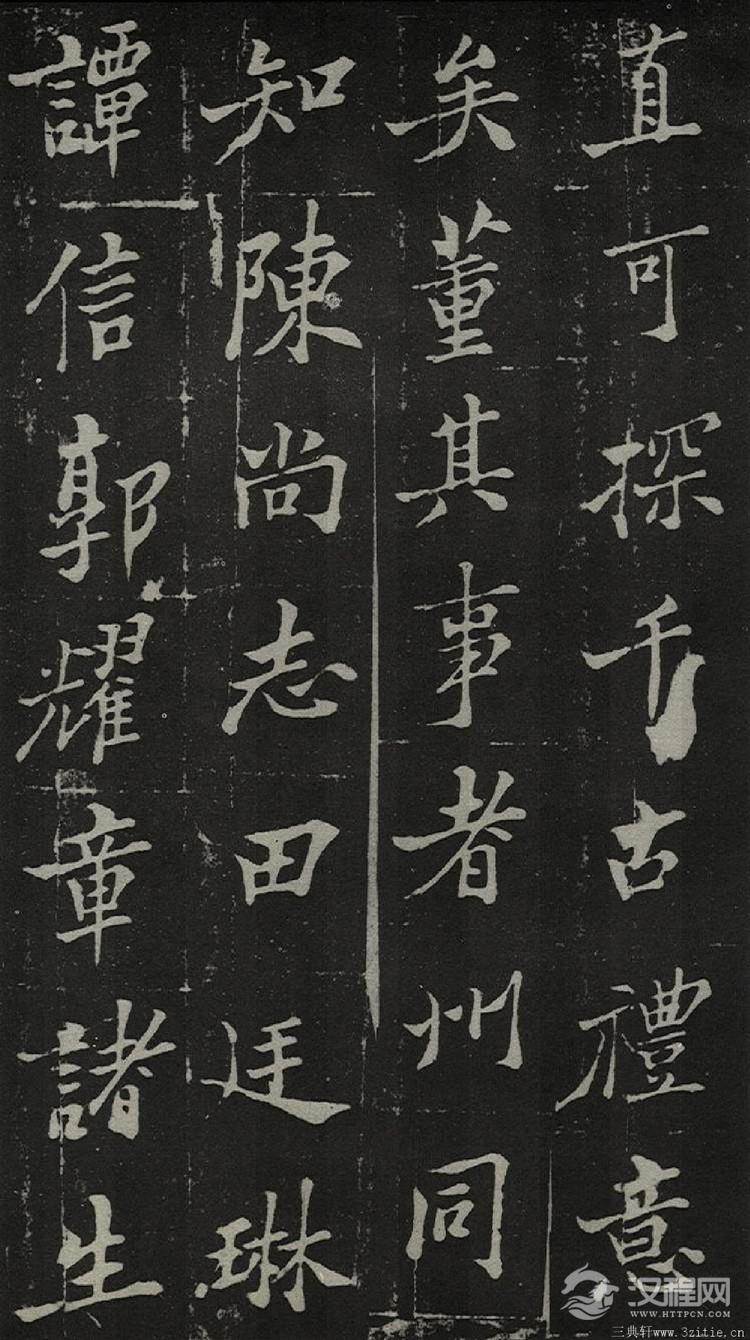 直可探千古禮意
矣董其事者州同
知陳尚志田廷琳
譚信郭耀章諸生
汉程网
WWW.HTTPCN.COM
三典轩www.3zitie.cn